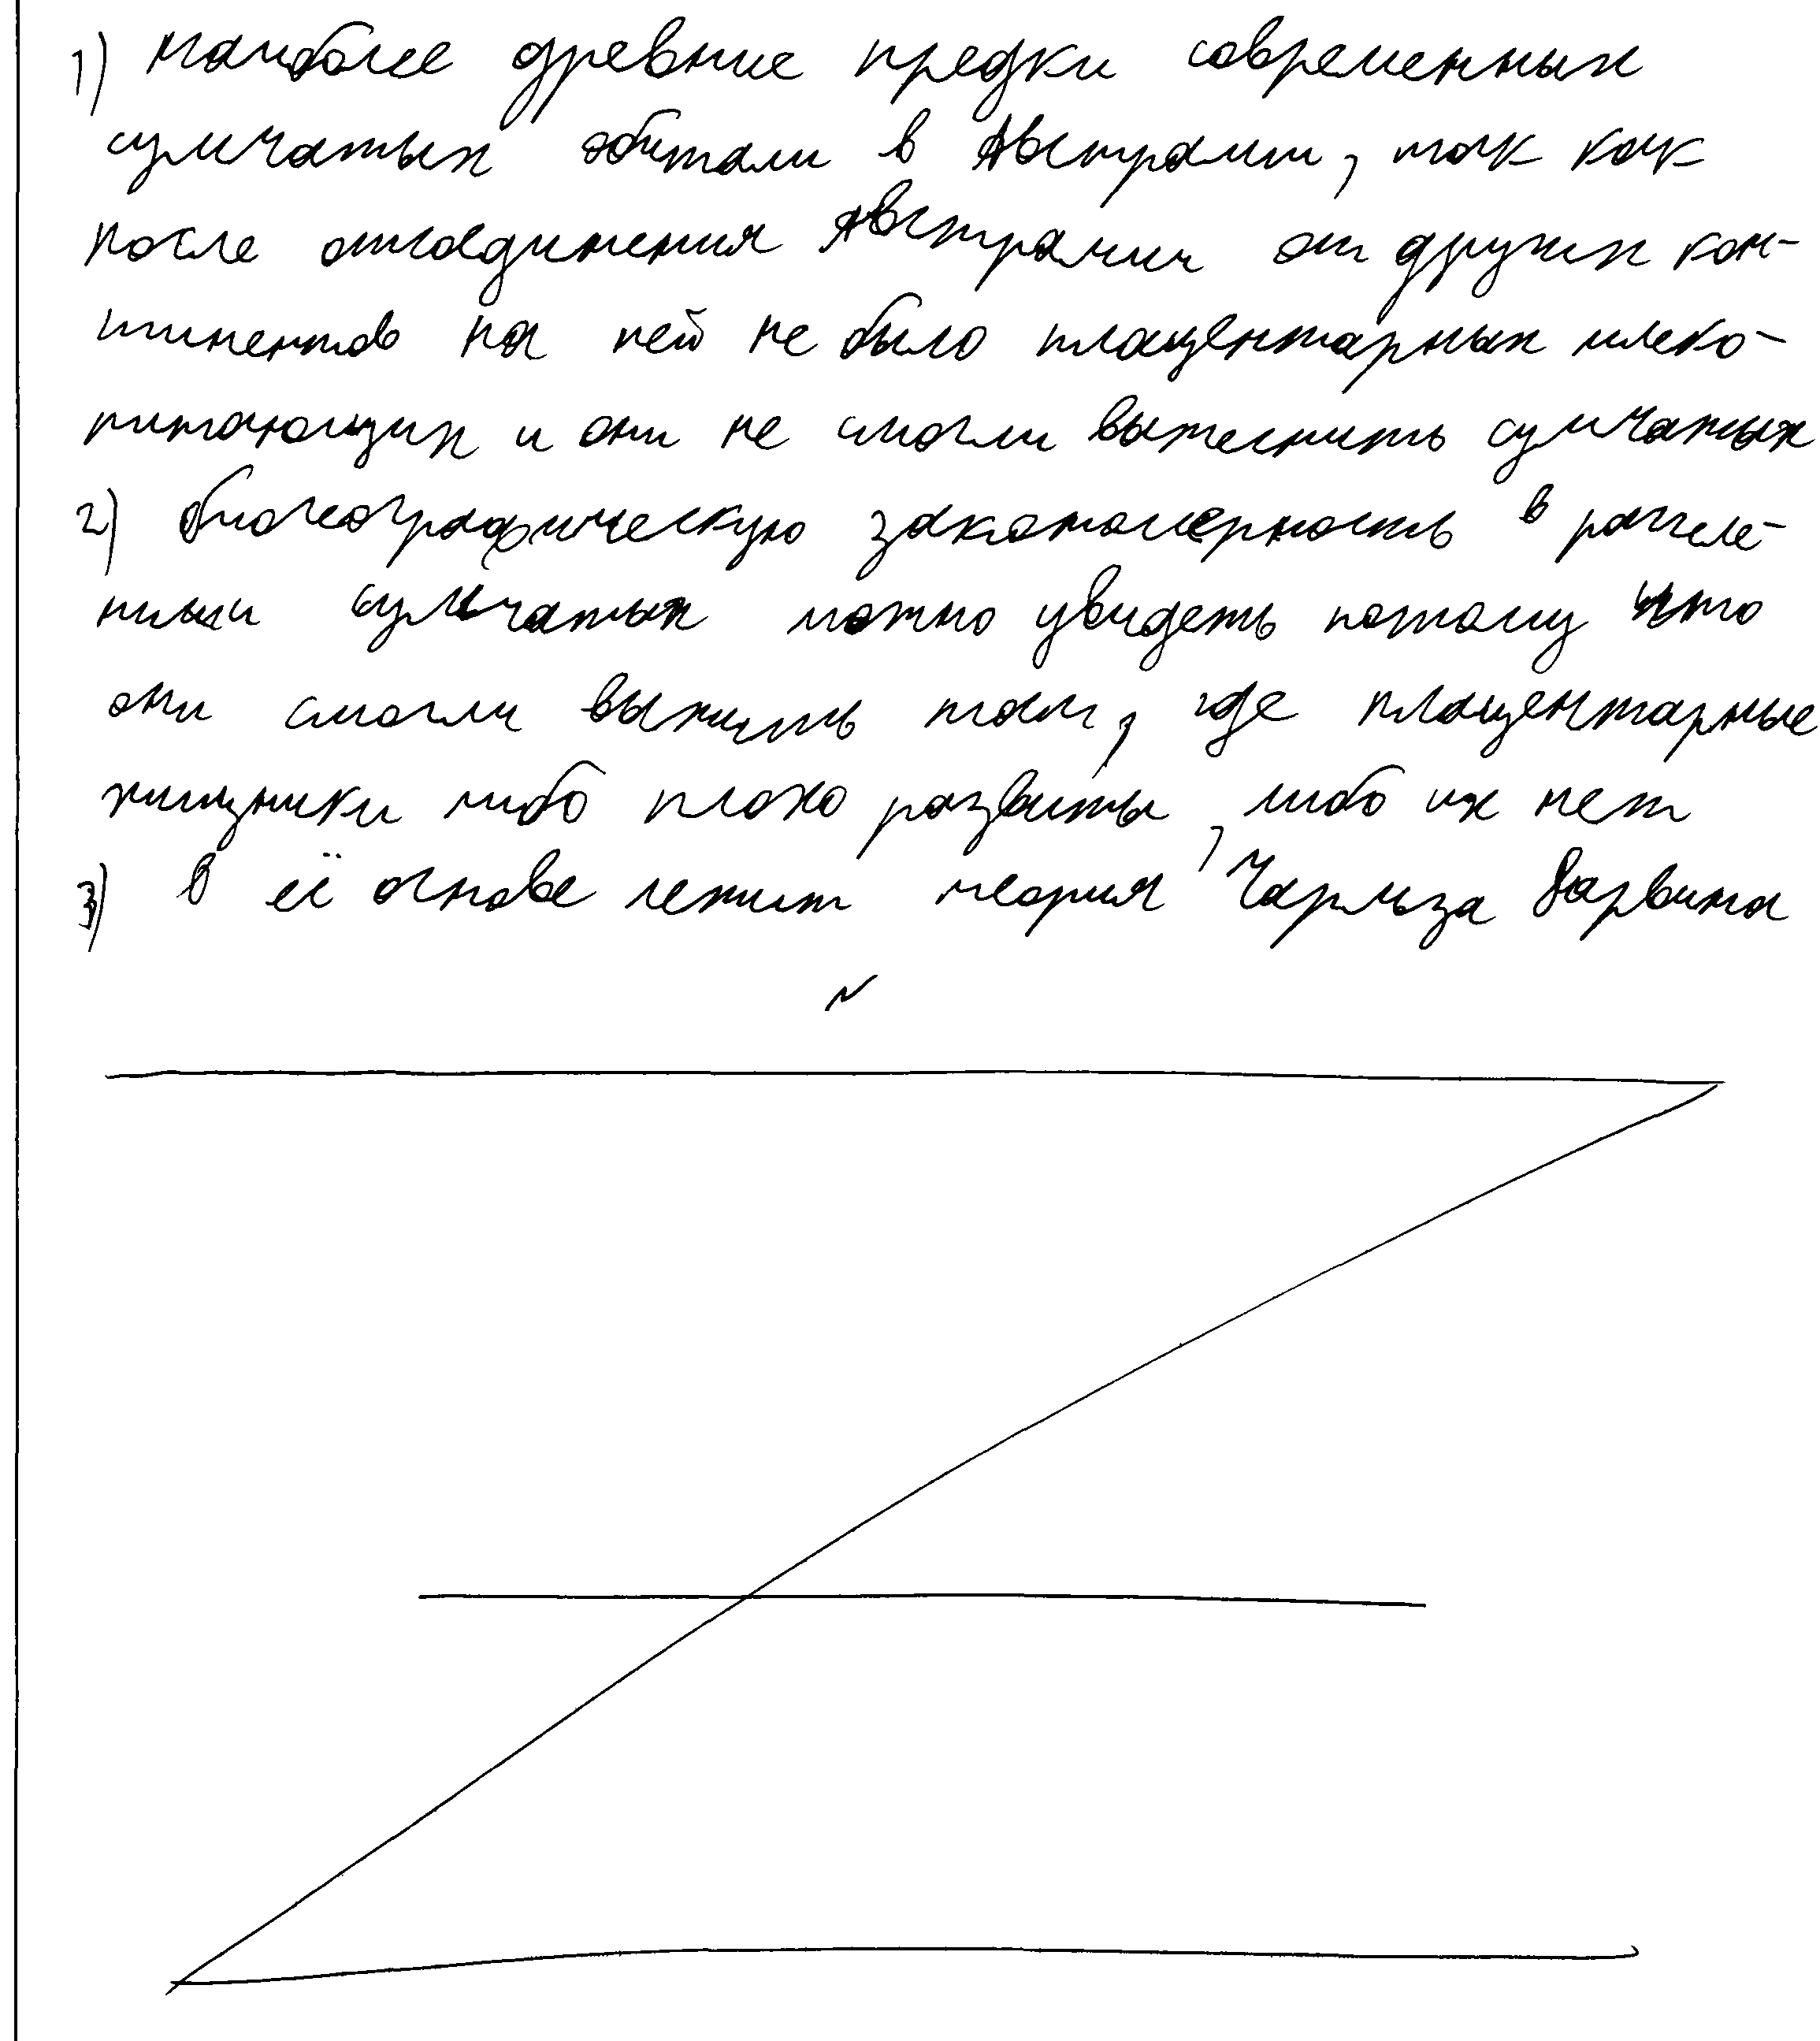 1) Наиболее древние предки современных
сумчатых обитали в Австралии, так как
после отсоединения Австралии от других кон-
тинентов на ней не было плацентарных млеко-
питающих и они не смогли вытеснить сумчатых
2) биогеографическую закономерность в рассле-
нии сумчатых можно увидеть потому что
они смогли выжить там, где плацентарные
хищники либо плохо развиты, либо их нет
3) в её основе лежит теория Чарльза Дарвина